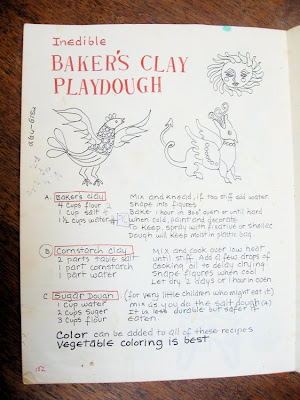 Inedible
BAKER'S CLAY
PLAYDOUGH
A. Baker's Clay
4 cups flour 2
1 cup salt
1½ cups water
Mix and knead, if too stiff add water.
Shape into figures
Bake 1 hour in 300° oven or until hard
when cold, paint and decorate
To keep, spray with fixative or shellac
Dough will keep moist in plastic bag
B. Cornstarch Clay
2 parts table salt
1 part cornstarch
1 part water
Mix and cook over low heat
until stiff. Add a few drops of
cooking oil to delay drying
Shape figures when cool
Let dry 2 days or 1 hour in oven
C. Sugar Dough
1 cup water
2 cups sugar
3 cups flour
(for very little children who might eat it)
mix as you do the salt dough (A)
It is less durable but safer if
eaten.
Color can be added to all of these recipes
Vegetable coloring is best
152